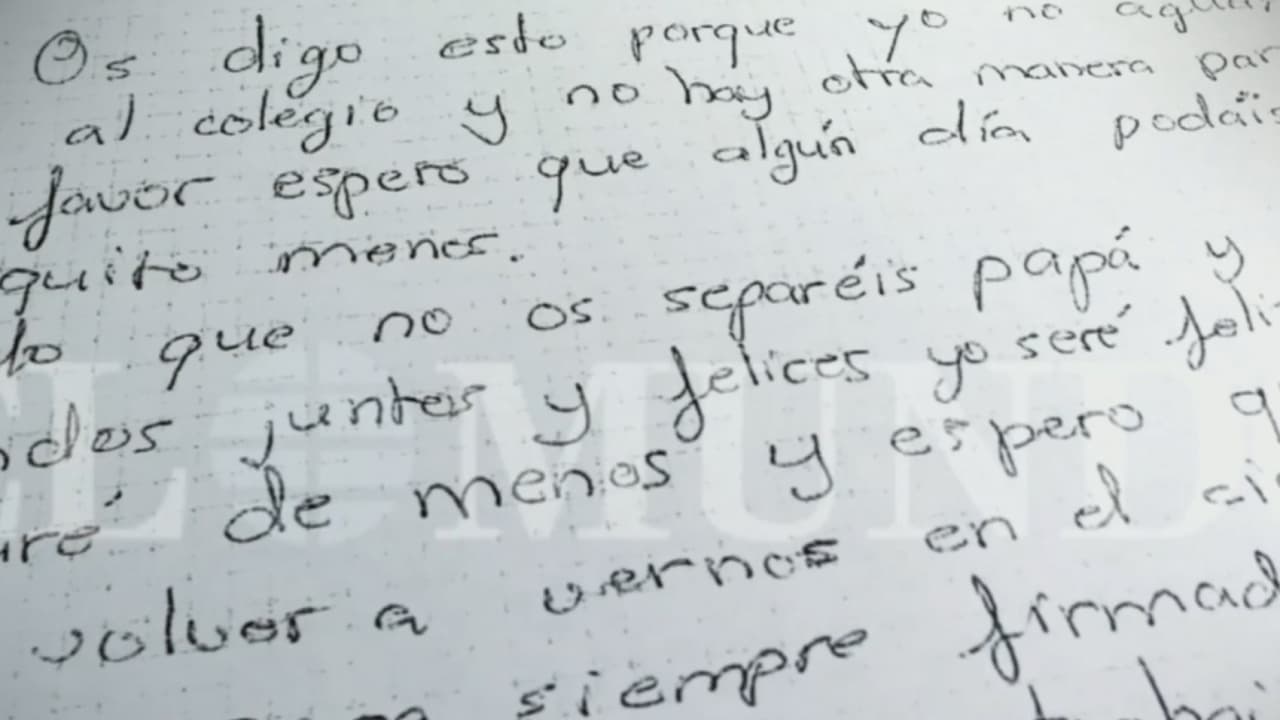 Os digo esto porque yo no
al colegio y no hay otra manera par
favor espero que algún día podáis
quito menos.
lo que no os separéis papá y
dos juntos y felices yo seré feli
aré de menos y espero q
volver a vernos en el cie
siempre firmad
EL MUND